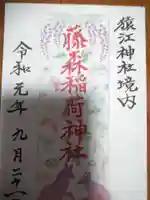 猿江神社境内
藤森稲荷神社
令和元年九月二十一